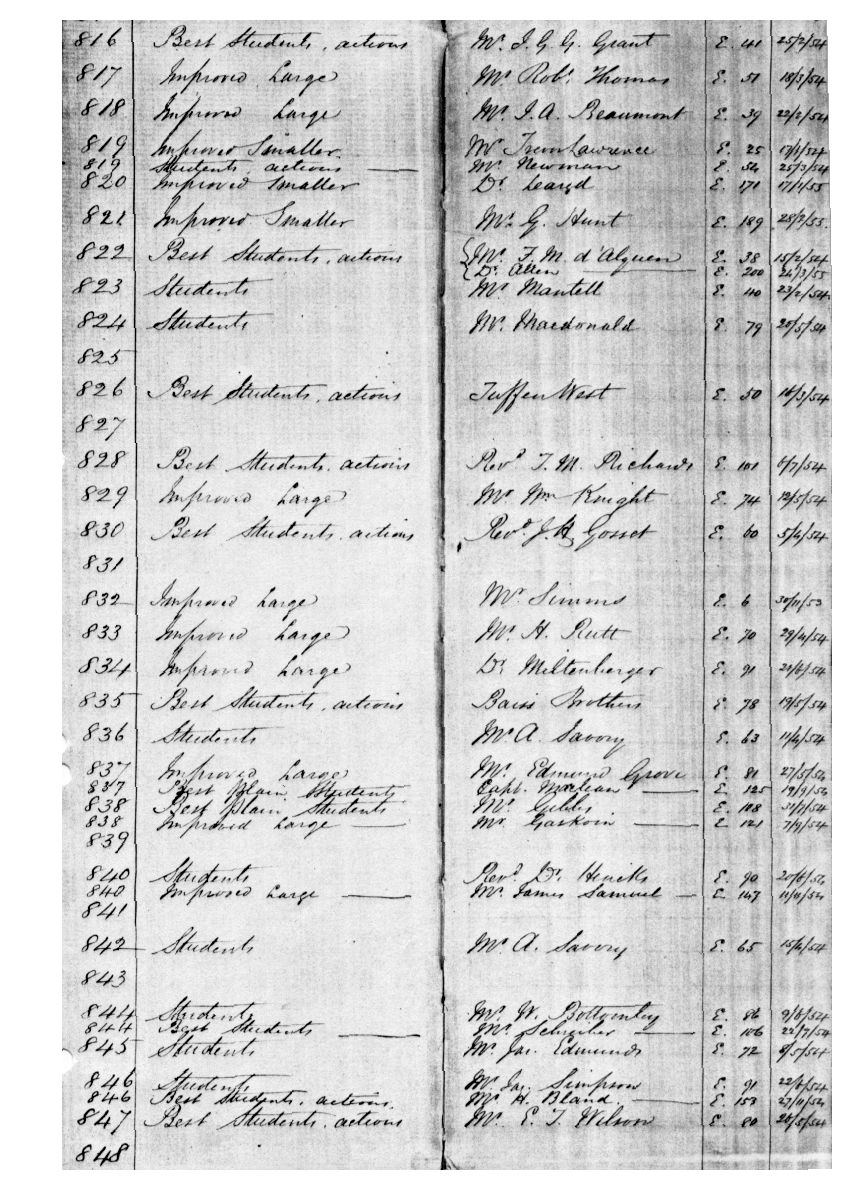 816 Best Students, actions Mr. J. G. G. Grant E. 41 25/2/54
817 Improved Large Mr. Robt. Thomas E. 51 18/3/54
818 Improved Large Mr. J. A. Beaumont E. 39 22/2/54
819 Improved Smaller Mr Trevor Lawrence E. 25 17/1/54
819 Students actions — Mr. Newman E. 54 25/3/54
820 Improved Smaller Dr. Leard E. 171 17/1/55
821 Improved Smaller Mr. G. Hunt E. 189 28/2/55
822 Best Students, actions { Mr. F. M. d'Alquen E. 38 15/2/54
{ Dr. Allen — E. 200 24/3/55
823 Students Mr Mantell E. 40 23/2/54
824 Students Mr. Macdonald E. 79 20/5/54
825
826 Best Students, actions Tuffen West E. 50 16/3/54
827
828 Best Students, actions Revd. T. M. Richards E. 101 6/7/54
829 Improved Large Mr. Wm Knight E. 74 12/5/54
830 Best Students, actions Revd. J. H. Gosset E. 60 5/4/54
831
832 Improved Large Mr Simms E. 6 30/11/53
833 Improved Large Mr. H. Rutt E. 70 29/4/54
834 Improved Large Dr. Miltenberger E. 91 21/6/54
835 Best Students, actions Baiss Brothers E. 78 19/5/54
836 Students Mr. A. Savory E. 63 11/4/54
837 Improved Large Mr. Edmund Grove E. 81 27/5/54
837 Best Plain Students Capt. Maclean — E. 125 19/9/54
838 Best Plain Students Mr. Gibbs E. 108 31/7/54
838 Improved Large — Mr Gaskoin — E 121 7/9/54
839
840 Students Revd. Dr. Hincks E. 90 20/6/54
840 Improved Large — Mr. James Samuel — E. 147 11/11/54
841
842 Students Mr. A. Savory E. 65 15/4/54
843
844 Students Mr. W. Bottomley E. 86 9/6/54
844 Best Students — Mr Schreiber — E. 106 22/7/54
845 Students Mr. Jas. Edmunds E. 72 8/5/54
846 Students Mr. Jas. Simpson E. 91 22/6/54
846 Best Students, actions. Mr H. Bland. — E. 153 27/11/54
847 Best Students, actions Mr. E. T. Wilson E. 80 26/5/54
848